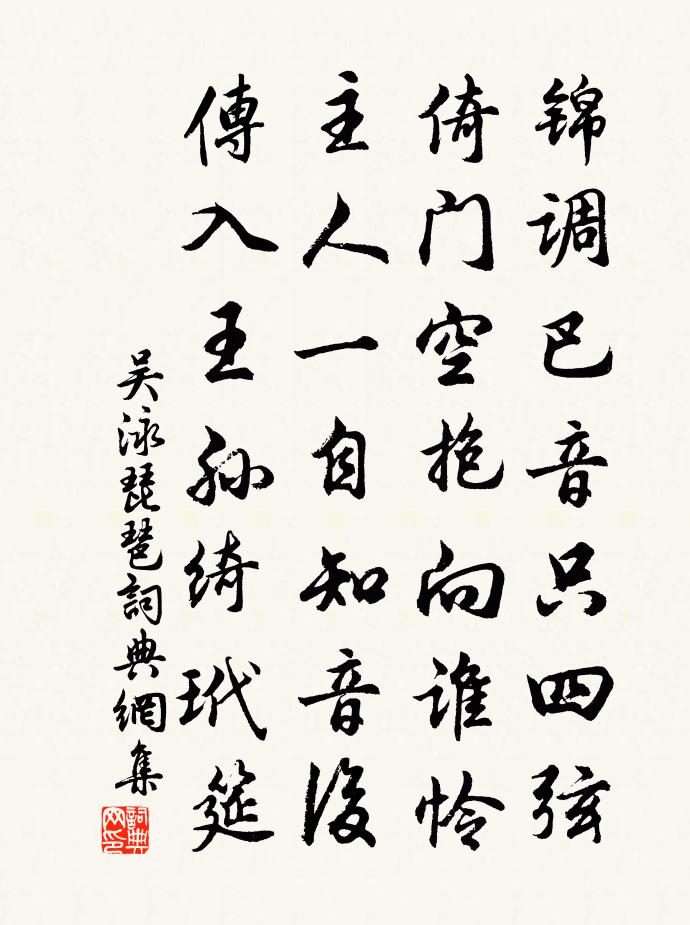 锦调巴音只四弦
倚门空抱向谁怜
主人一自知音後
傳入王孙绮玳筵
吴泳琵琶詞典網集
詞典网印